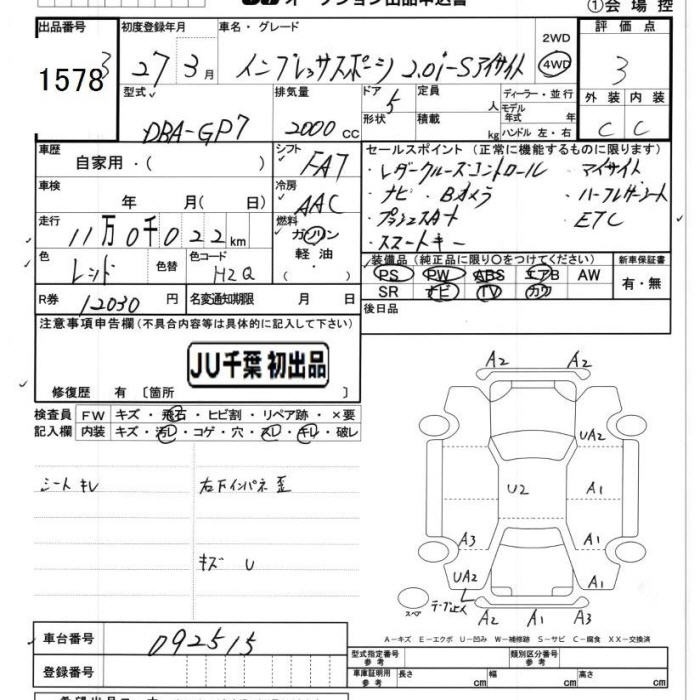 ①会場控
出品番号 初度登録年月 車名・グレード 評価点
1578 3 27 3月 インプレッサスポーツ 2.0i-Sアイサイト 2WD 4WD 3
型式 排気量 ドア 5 定員 人 ディーラー・並行 外装 内装
DBA-GP7 2000cc 形状 積載 kg モデル年式 年 ハンドル 左・右 C C
車歴 自家用・( ) シフト FA7 セールスポイント(正常に機能するものに限ります)
車検 年 月( 日) 冷房 AAC ・レダークルーズコントロール ・アイサイト
・ナビ ・Bカメラ ・ハーフレザーシート
走行 11万0千022km 燃料 ガソリン 軽油 ( ) ・プッシュスタート ・ETC
・スマートキー
色 レッド 色替 色コード H2Q 装備品(純正品に限り○をつけてください) 新車保証書
PS PW ABS エアB AW 有・無
R券 12030円 名変通知期限 月 日 SR ナビ TV カワ
注意事項申告欄(不具合内容等は具体的に記入して下さい) 後日品
JU千葉 初出品
修復歴 有 〔箇所 〕
検査員 FW キズ・飛石・ヒビ割・リペア跡・×要
記入欄 内装 キズ・汚レ・コゲ・穴・スレ・キレ・破レ
シート キレ 右下インパネ 歪
キズ U
A2 A2
UA2
U2 A1
A3 A1
UA2 A1
スペア
A2 A1 A3
A-キズ E-エクボ U-凹み W-補修跡 S-サビ C-腐食 XX-交換済
車台番号 092515
型式指定番号 参考 類別区分番号 参考
登録番号 車庫証明用 参考 長さ cm 幅 cm 高さ cm